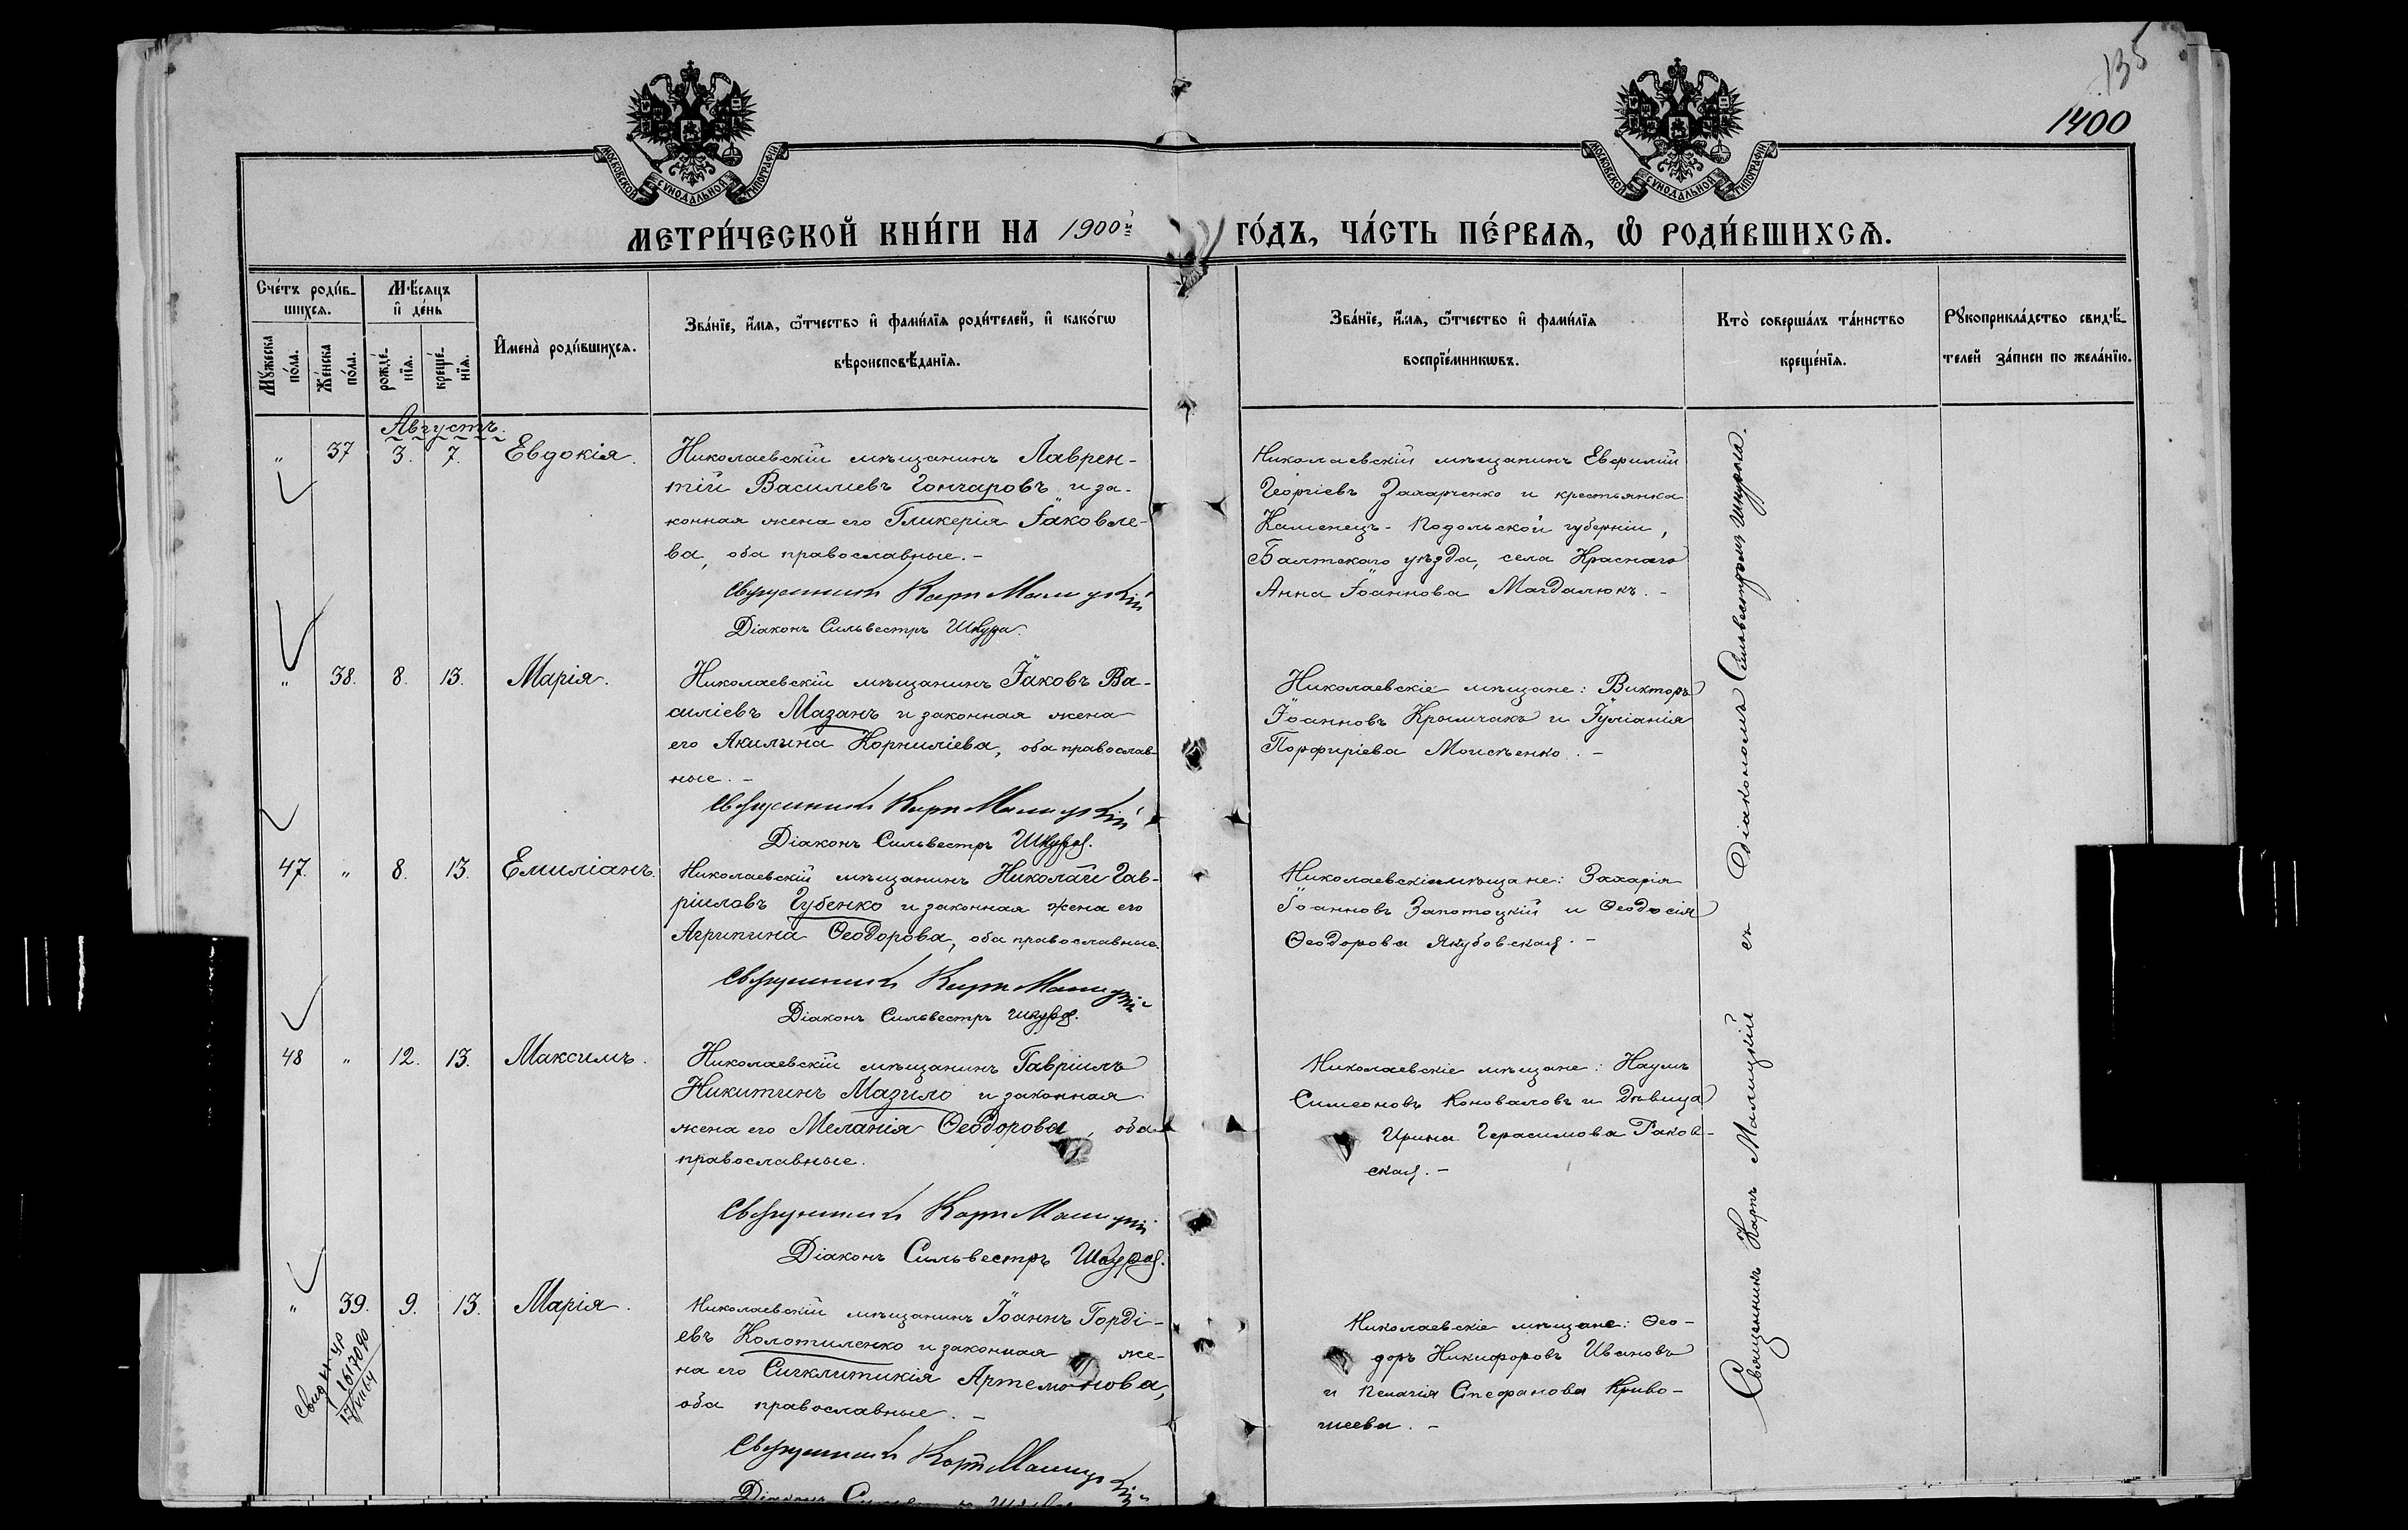 135
1400
МОСКОВСКОЙ СУНОДАЛЬНОЙ ТИПОГРАФІИ
МОСКОВСКОЙ СУНОДАЛЬНОЙ ТИПОГРАФІИ
МЕТРИ́ЧЕСКОЙ КНИ́ГИ НА 1900й ГО́ДЪ, ЧА́СТЬ ПЕ́РВАѦ, Ѡ РОДИ́ВШИХСѦ.
Сче́тъ роди́в-
шихсѧ.
Мꙋ́жеска по́ла.
Же́нска по́ла.
Мѣ́сѧцъ
и҆ де́нь
рожде́-
нїѧ.
креще́-
нїѧ.
И҆мена̀ роди́вшихсѧ.
Зва́нїе, и҆́мѧ, ѻ҆́тчество и҆ фами́лїѧ роди́телей, и҆ како́гѡ
вѣроисповѣ́данїѧ.
Зва́нїе, и҆́мѧ, ѻ҆́тчество и҆ фами́лїѧ
воспрїе́мникѡвъ.
Кто̀ соверша́лъ та́инство
креще́нїѧ.
Рꙋкоприкла́дство свидѣ́-
телей за́писи по жела́нїю.
Августъ.
" 37 3. 7. Евдокія.
Николаевскій мѣщанинъ Лаврен-
тій Василіевъ Гончаровъ и за-
конная жена его Гликерія Іаковле-
ва, оба православные. -
Священникъ Карпъ Малицкій
Діаконъ Сильвестръ Шкура.
Николаевскій мѣщанинъ Евфимій
Георгіевъ Захарченко и крестьянка
Каменецъ-Подольской губерніи,
Балтскаго уѣзда, села Краснаго
Анна Іоаннова Магдалюкъ. -
" 38. 8. 13. Марія.
Николаевскій мѣщанинъ Іаковъ Ва-
силіевъ Мазанъ и законная жена
его Акилина Корниліева, оба православ-
ные. -
Священникъ Карпъ Малицкій
Діаконъ Сильвестръ Шкура.
Николаевскіе мѣщане: Викторъ
Іоанновъ Крымчакъ и Іуліанія
Порфиріева Моисѣенко. -
47. " 8. 13. Емиліанъ.
Николаевскій мѣщанинъ Николай Гав-
ріиловъ Губенко и законная жена его
Агрипина Ѳеодорова, оба православные.
Священникъ Карпъ Малицкій
Діаконъ Сильвестръ Шкура.
Николаевскіе мѣщане: Захарія
Іоанновъ Запотоцкій и Ѳеодосія
Ѳеодорова Якубовская. -
48 " 12. 13. Максимъ.
Николаевскій мѣщанинъ Гавріилъ
Никитинъ Мазило и законная
жена его Меланія Ѳеодорова, оба
православные.
Священникъ Карпъ Малицкій
Діаконъ Сильвестръ Шкура.
Николаевскіе мѣщане: Наумъ
Симеоновъ Коноваловъ и дѣвица
Ирина Герасимова Раков-
ская. -
" 39. 9. 13. Марія.
Николаевскій мѣщанинъ Іоаннъ Горді-
евъ Колотиленко и законная же-
на его Сигклитикія Артемонова,
оба православные. -
Священникъ Карпъ Малицкій
Діаконъ
Николаевскіе мѣщане: Ѳео-
доръ Никифоровъ Ивановъ
и Пелагія Стефанова Криво-
шеева. -
Священникъ Карпъ Малицкій съ Діакономъ Сильвестромъ Шкурою.